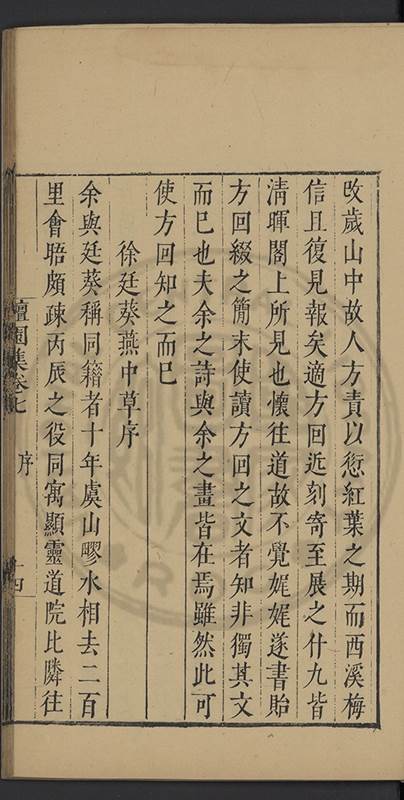 改歲山中故人方責以愆紅葉之期而西溪梅
信且復見報矣適方回近刻寄至展之什九皆
清暉閣上所見也懷往道故不覺娓娓遂書貽
方回綴之簡末使讀方回之文者知非獨其文
而已也夫余之詩與余之畫皆在焉雖然此可
使方回知之而已
徐廷葵燕中草序
余與廷葵稱同籍者十年虞山㶟水相去二百
里會晤頗疎丙辰之役同寓顯靈道院比隣往
檀園集卷七
序
十四